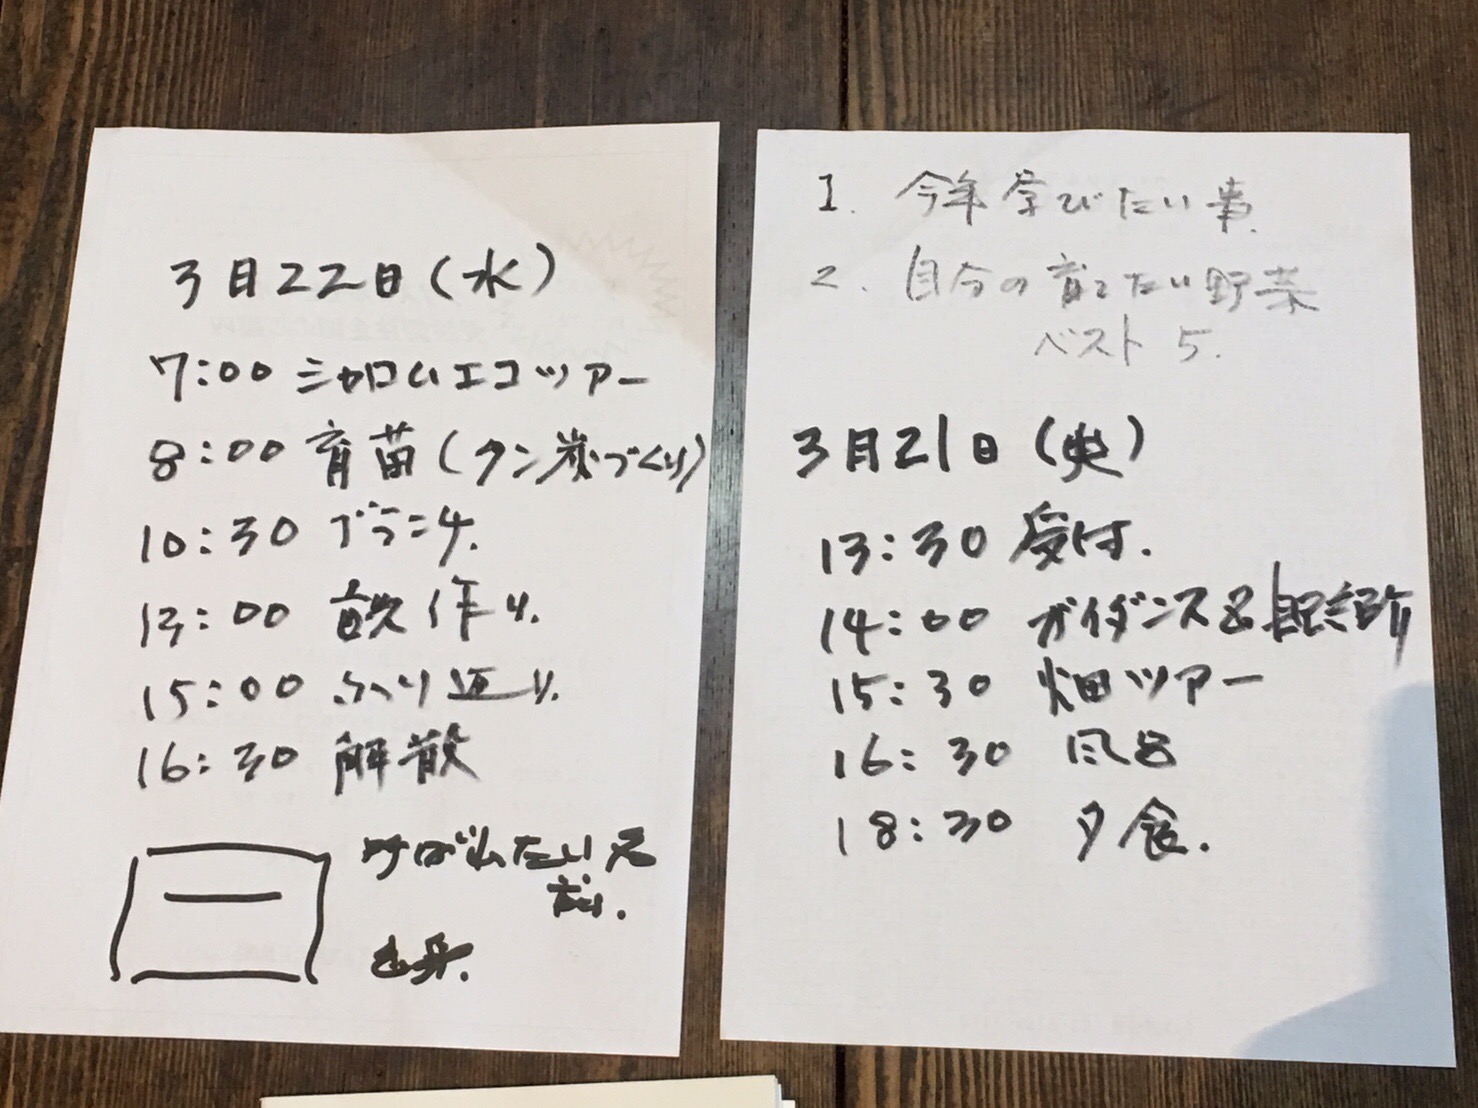 3月22日(水)
7:00 シャロムエコツアー
8:00 育苗(クン炭づくり)
10:30 ブランチ.
13:00 畝作り.
15:00 ふり返り.
16:30 解散
呼ばれたい名前.
出身.
1. 今年学びたい事.
2. 自分の育てたい野菜
ベスト 5.
3月21日(火)
13:30 受付.
14:00 ガイダンス&自己紹介
15:30 畑ツアー
16:30 風呂
18:30 夕食.